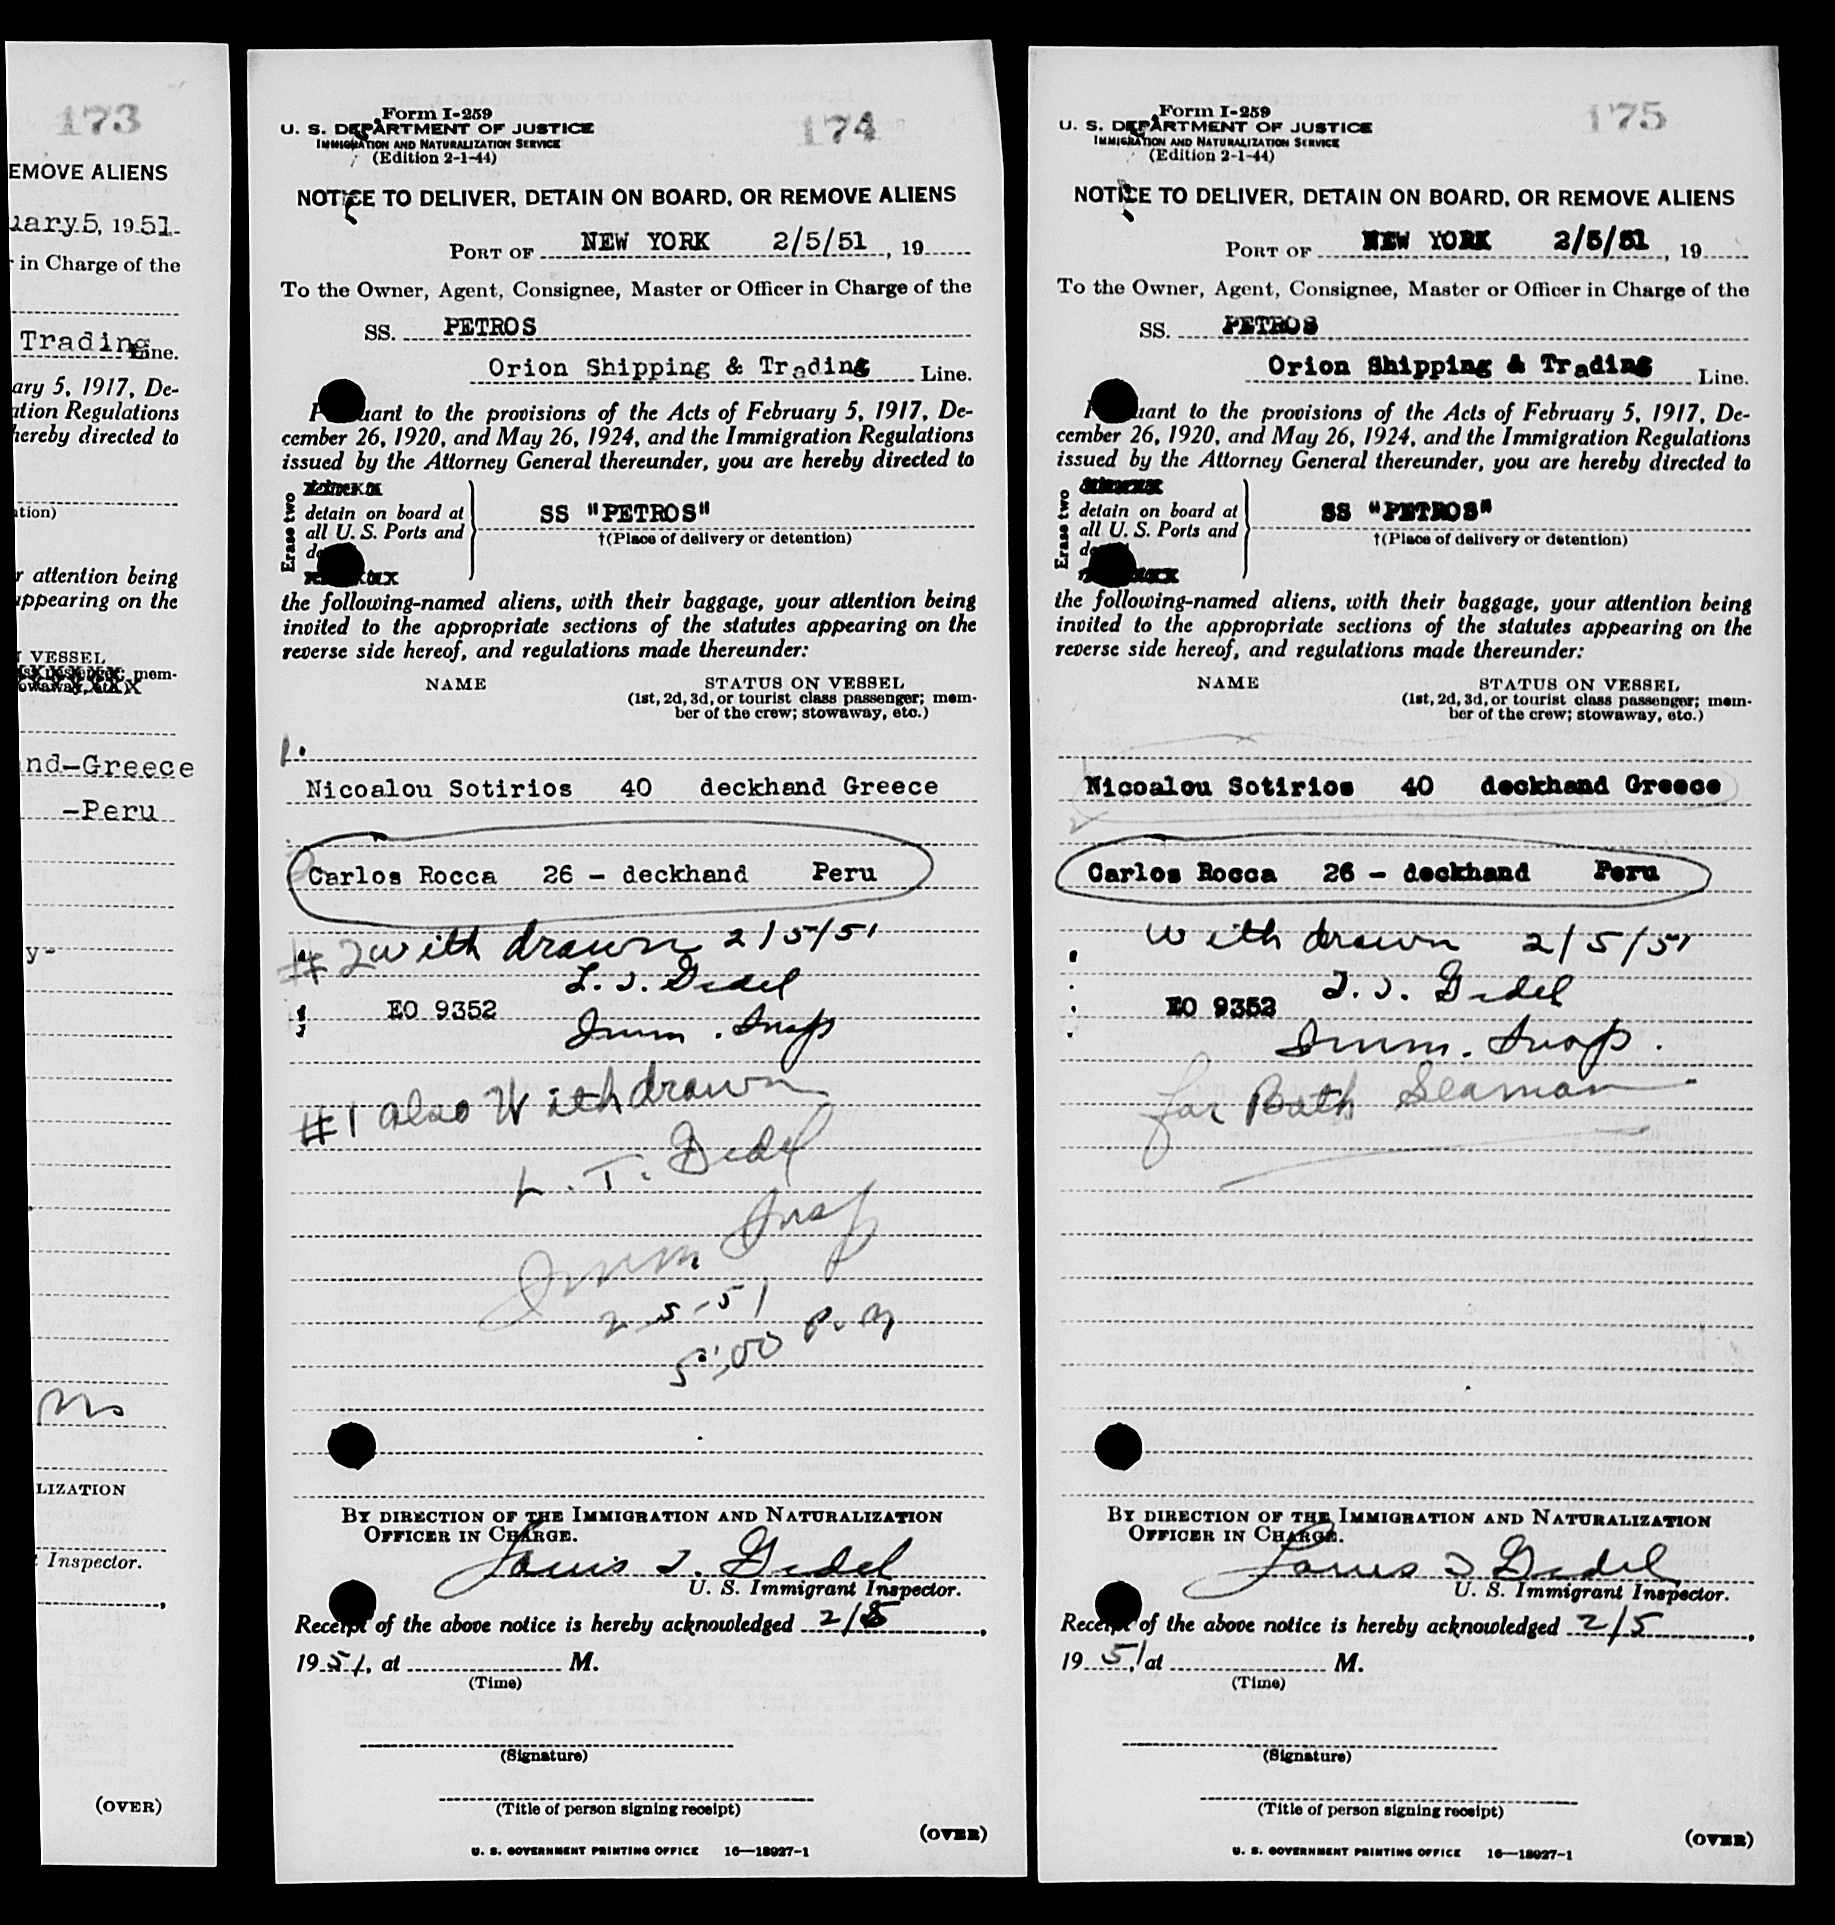 173
EMOVE ALIENS
uary 5, 1951.
r in Charge of the
Trading Line.
ary 5, 1917, De-
ation Regulations
hereby directed to
ation)
r attention being
appearing on the
N VESSEL
mem-
nd-Greece
-Peru
y-
LIZATION
t Inspector.
(OVER)
Form I-259
174
U. S. DEPARTMENT OF JUSTICE
IMMIGRATION AND NATURALIZATION SERVICE
(Edition 2-1-44)
NOTICE TO DELIVER, DETAIN ON BOARD, OR REMOVE ALIENS
PORT OF NEW YORK 2/5/51, 19
To the Owner, Agent, Consignee, Master or Officer in Charge of the
SS. PETROS
Orion Shipping & Trading Line.
Pursuant to the provisions of the Acts of February 5, 1917, De-
cember 26, 1920, and May 26, 1924, and the Immigration Regulations
issued by the Attorney General thereunder, you are hereby directed to
Erase two
detain on board at
all U. S. Ports and
SS "PETROS"
†(Place of delivery or detention)
the following-named aliens, with their baggage, your attention being
invited to the appropriate sections of the statutes appearing on the
reverse side hereof, and regulations made thereunder:
NAME STATUS ON VESSEL
(1st, 2d, 3d, or tourist class passenger; mem-
ber of the crew; stowaway, etc.)
1.
Nicoalou Sotirios 40 deckhand Greece
Carlos Rocca 26 - deckhand Peru
#2 withdrawn 2/5/51
L. J. Gedel
EO 9352
Imm. Insp
#1 also Withdrawn
L. T. Gedel
Imm Insp
2-5-51
5:00 P.M
BY DIRECTION OF THE IMMIGRATION AND NATURALIZATION
OFFICER IN CHARGE.
Louis J. Gedel
U. S. Immigrant Inspector.
Receipt of the above notice is hereby acknowledged 2/5,
1951, at M.
(Time)
(Signature)
(Title of person signing receipt)
(OVER)
U. S. GOVERNMENT PRINTING OFFICE 16—18927-1
Form I-259
175
U. S. DEPARTMENT OF JUSTICE
IMMIGRATION AND NATURALIZATION SERVICE
(Edition 2-1-44)
NOTICE TO DELIVER, DETAIN ON BOARD, OR REMOVE ALIENS
PORT OF NEW YORK 2/5/51, 19
To the Owner, Agent, Consignee, Master or Officer in Charge of the
SS. PETROS
Orion Shipping & Trading Line.
Pursuant to the provisions of the Acts of February 5, 1917, De-
cember 26, 1920, and May 26, 1924, and the Immigration Regulations
issued by the Attorney General thereunder, you are hereby directed to
Erase two
detain on board at
all U. S. Ports and
SS "PETROS"
†(Place of delivery or detention)
the following-named aliens, with their baggage, your attention being
invited to the appropriate sections of the statutes appearing on the
reverse side hereof, and regulations made thereunder:
NAME STATUS ON VESSEL
(1st, 2d, 3d, or tourist class passenger; mem-
ber of the crew; stowaway, etc.)
Nicoalou Sotirios 40 deckhand Greece
Carlos Rocca 26 - deckhand Peru
Withdrawn 2/5/51
L. J. Gedel
EO 9352
Imm. Insp.
for Both Seaman
BY DIRECTION OF THE IMMIGRATION AND NATURALIZATION
OFFICER IN CHARGE.
Louis J Gedel
U. S. Immigrant Inspector.
Receipt of the above notice is hereby acknowledged 2/5,
1951, at M.
(Time)
(Signature)
(Title of person signing receipt)
(OVER)
U. S. GOVERNMENT PRINTING OFFICE 16—18927-1